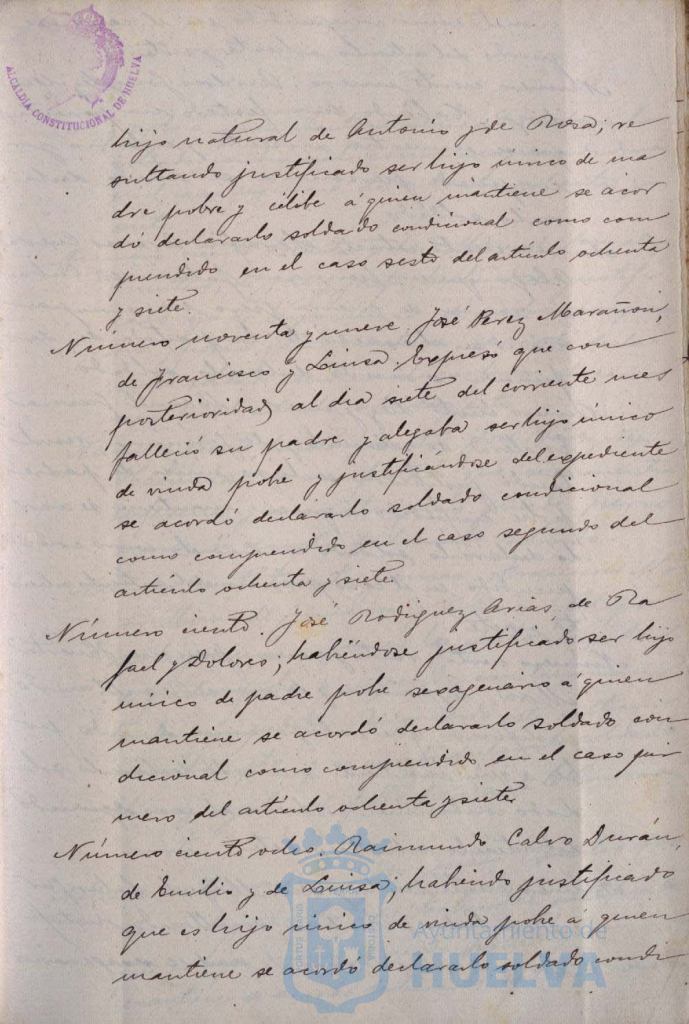 ALCALDIA CONSTITUCIONAL DE HUELVA
hijo natural de Antonio y de Rosa; re
sultando justificado ser hijo único de ma
dre pobre y célibe á quien mantiene se acor
dó declararlo soldado condicional como com
prendido en el caso sesto del artículo ochenta
y siete.
Número noventa y nueve. José Perez Marañon,
de Francisco y Luisa. Expresó que con
posterioridad al dia siete del corriente mes
falleció su padre y alegaba ser hijo único
de viuda pobre y justificándose del expediente
se acordó declararlo soldado condicional
como comprendido en el caso segundo del
artículo ochenta y siete.
Número ciento. José Rodriguez Arias, de Ra
fael y Dolores; habiéndose justificado ser hijo
único de padre pobre sexagenario á quien
mantiene se acordó declararlo soldado con
dicional como comprendido en el caso pri
mero del artículo ochenta y siete.
Número ciento ocho. Raimundo Calvo Durán,
de Emilio y de Luisa; habiendo justificado
que es hijo único de viuda pobre á quien
mantiene se acordó declararlo soldado condi
Ayuntamiento de
HUELVA